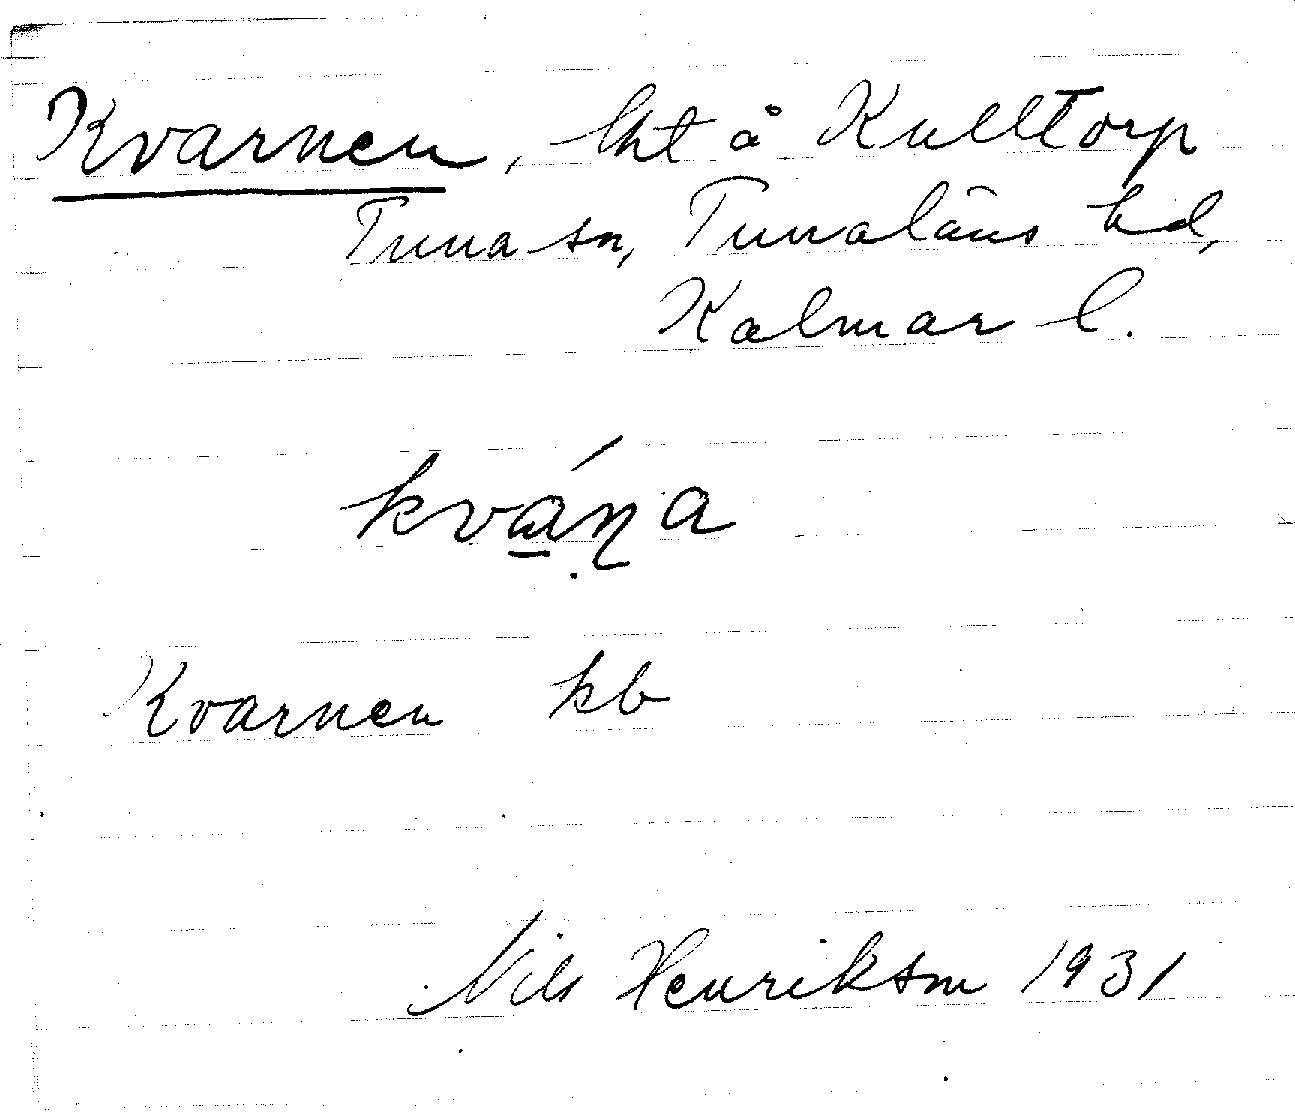 Kvarnen, lht å Kulltorp
Tuna sn, Tunaläns hd,
Kalmar l.
kvána
Kvarnen kb
Nils Henrikson 1931